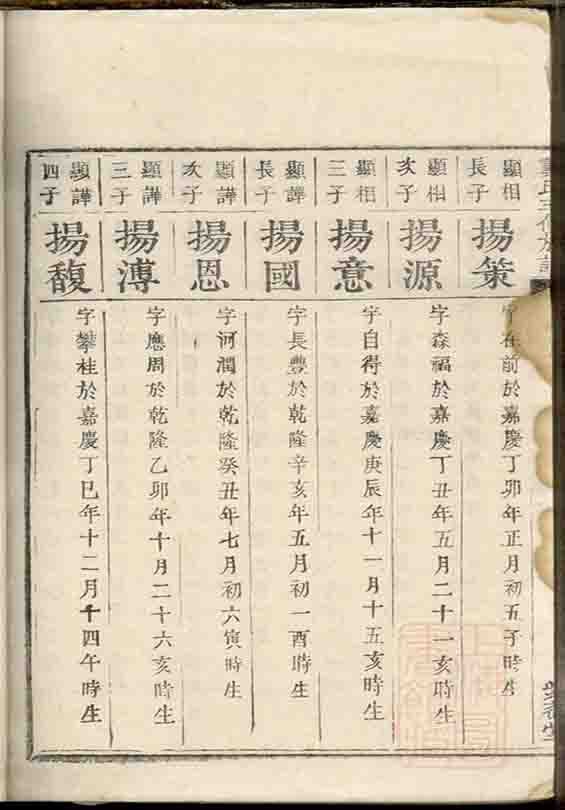 顯相
長子
揚策
字在前於嘉慶丁卯年正月初五子時生
顯相
次子
揚源
字森福於嘉慶丁丑年五月二十一亥時生
顯相
三子
揚意
字自得於嘉慶庚辰年十一月十五亥時生
顯譁
長子
揚國
字長豐於乾隆辛亥年五月初一酉時生
顯譁
次子
揚恩
字河潤於乾隆癸丑年七月初六寅時生
顯譁
三子
揚溥
字應周於乾隆乙卯年十月二十六亥時生
顯譁
四子
揚馥
字攀桂於嘉慶丁巳年十二月千四午時生